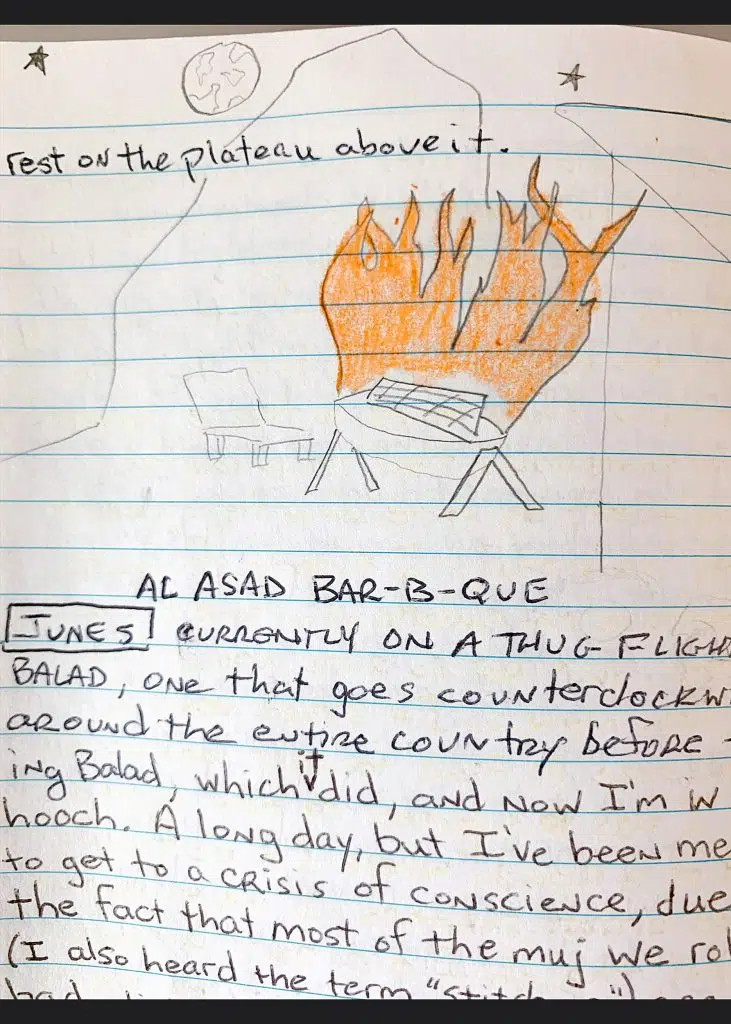 rest on the plateau above it.
AL ASAD BAR-B-QUE
JUNE 5 CURRENTLY ON A THUG FLIGH
BALAD, ONE that goes counterclockw
around the entire country before
ing Balad, which it did, and now I'm
hooch. A long day, but I've been me
to get to a crisis of conscience, due
the fact that most of the muj we rol
(I also heard the term "stitch
had